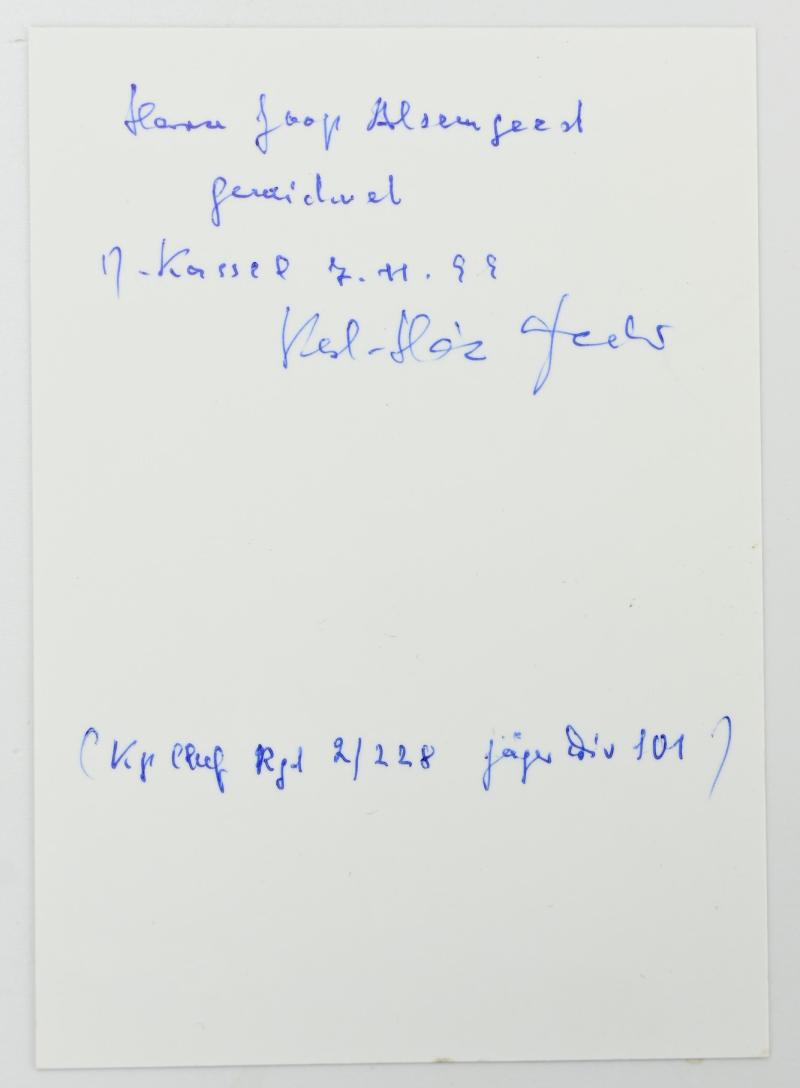 Herrn Joop Alsemgeest
gewidmet
N-Kassel 7.11.99
Karl-Hz
(Kp Chef Rgt 2/228 Jäger Div 101)